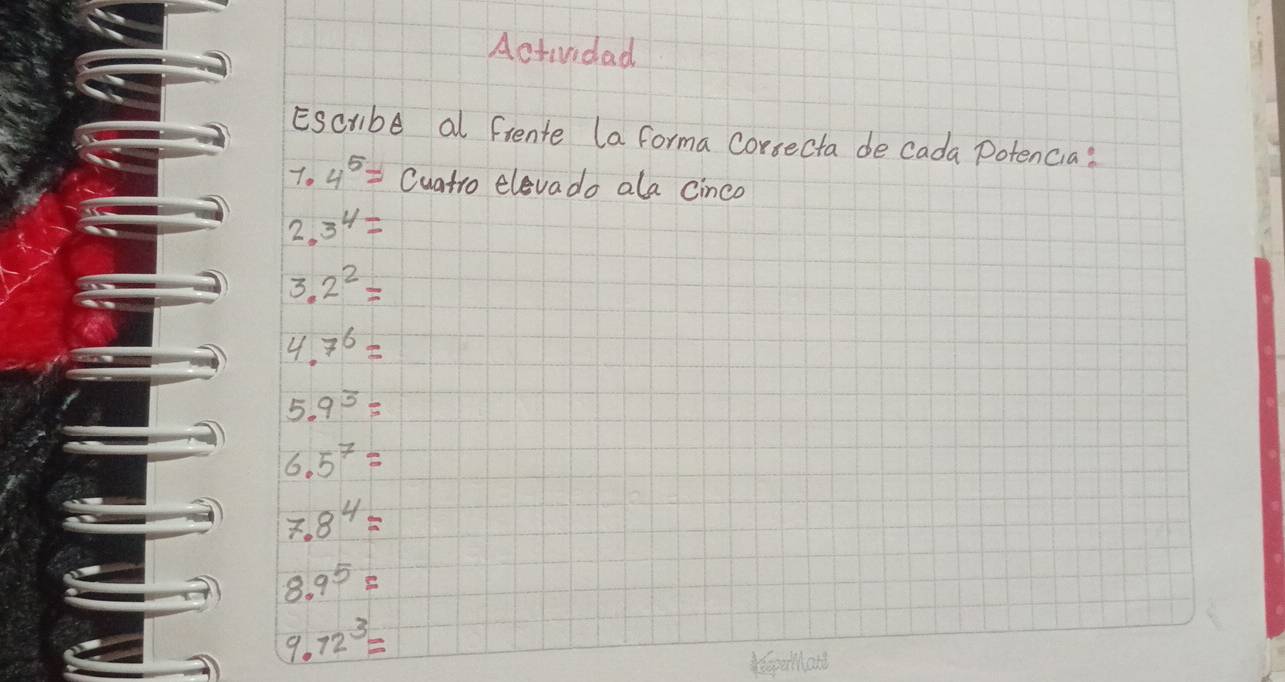 Actividad
Escribe al frente la forma correcta de cada Potencia:
1. 4⁵ = Cuatro elevado ala cinco
2. 3⁴ =
3. 2² =
4. 7⁶ =
5. 9³ =
6. 5⁷ =
7. 8⁴ =
8. 9⁵ =
9. 12³ =